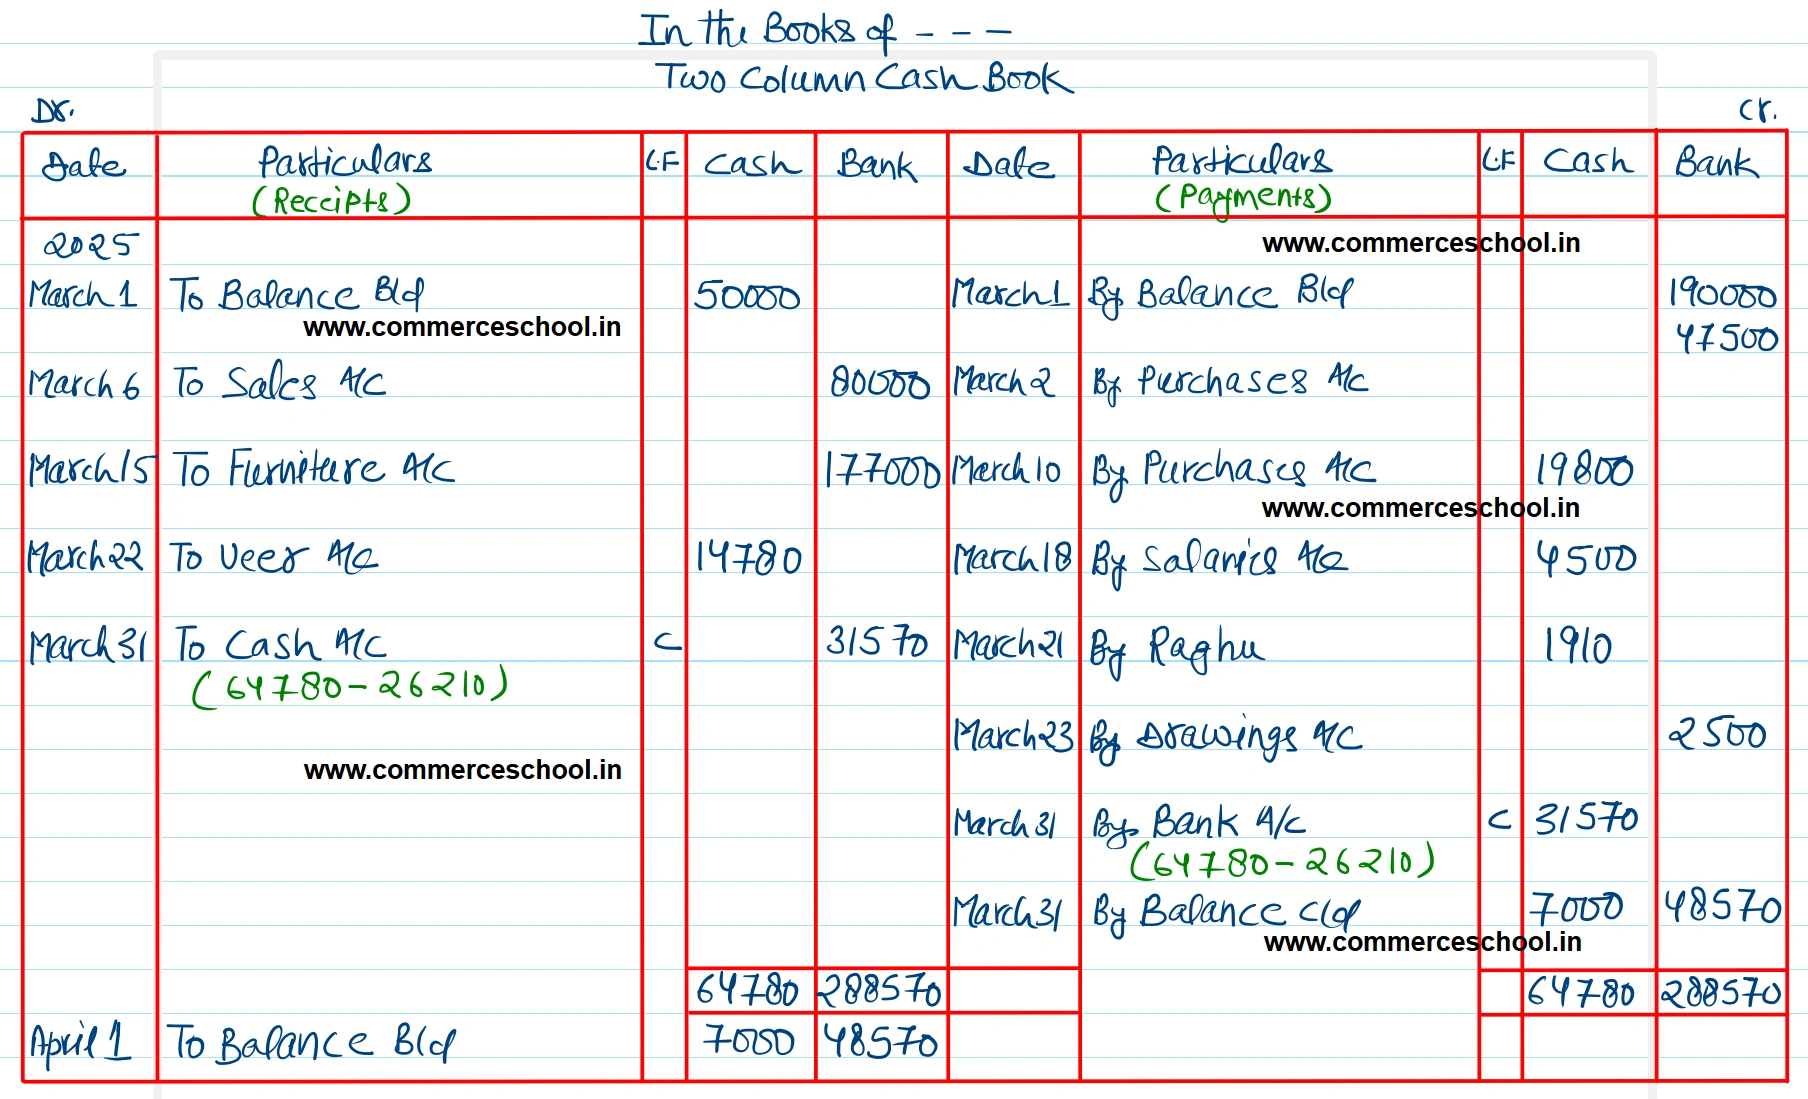 In the Books of - - -
Two Column Cash Book
Dr. Cr.
Date Particulars L.F Cash Bank Date Particulars L.F Cash Bank
(Receipts) (Payments)
2025 www.commerceschool.in
March 1 To Balance B/d 50000 March 1 By Balance B/d 190000
www.commerceschool.in 47500
March 6 To Sales A/C 80000 March 2 By Purchases A/c
March 15 To Furniture A/C 177000 March 10 By Purchases A/C 19800
www.commerceschool.in
March 22 To Veer A/c 14780 March 18 By Salaries A/c 4500
March 31 To Cash A/C C 31570 March 21 By Raghu 1910
(64780-26210)
March 23 By Drawings A/C 2500
www.commerceschool.in
March 31 By Bank A/c C 31570
(64780-26210)
March 31 By Balance c/d 7000 48570
www.commerceschool.in
64780 288570 64780 288570
April 1 To Balance B/d 7000 48570